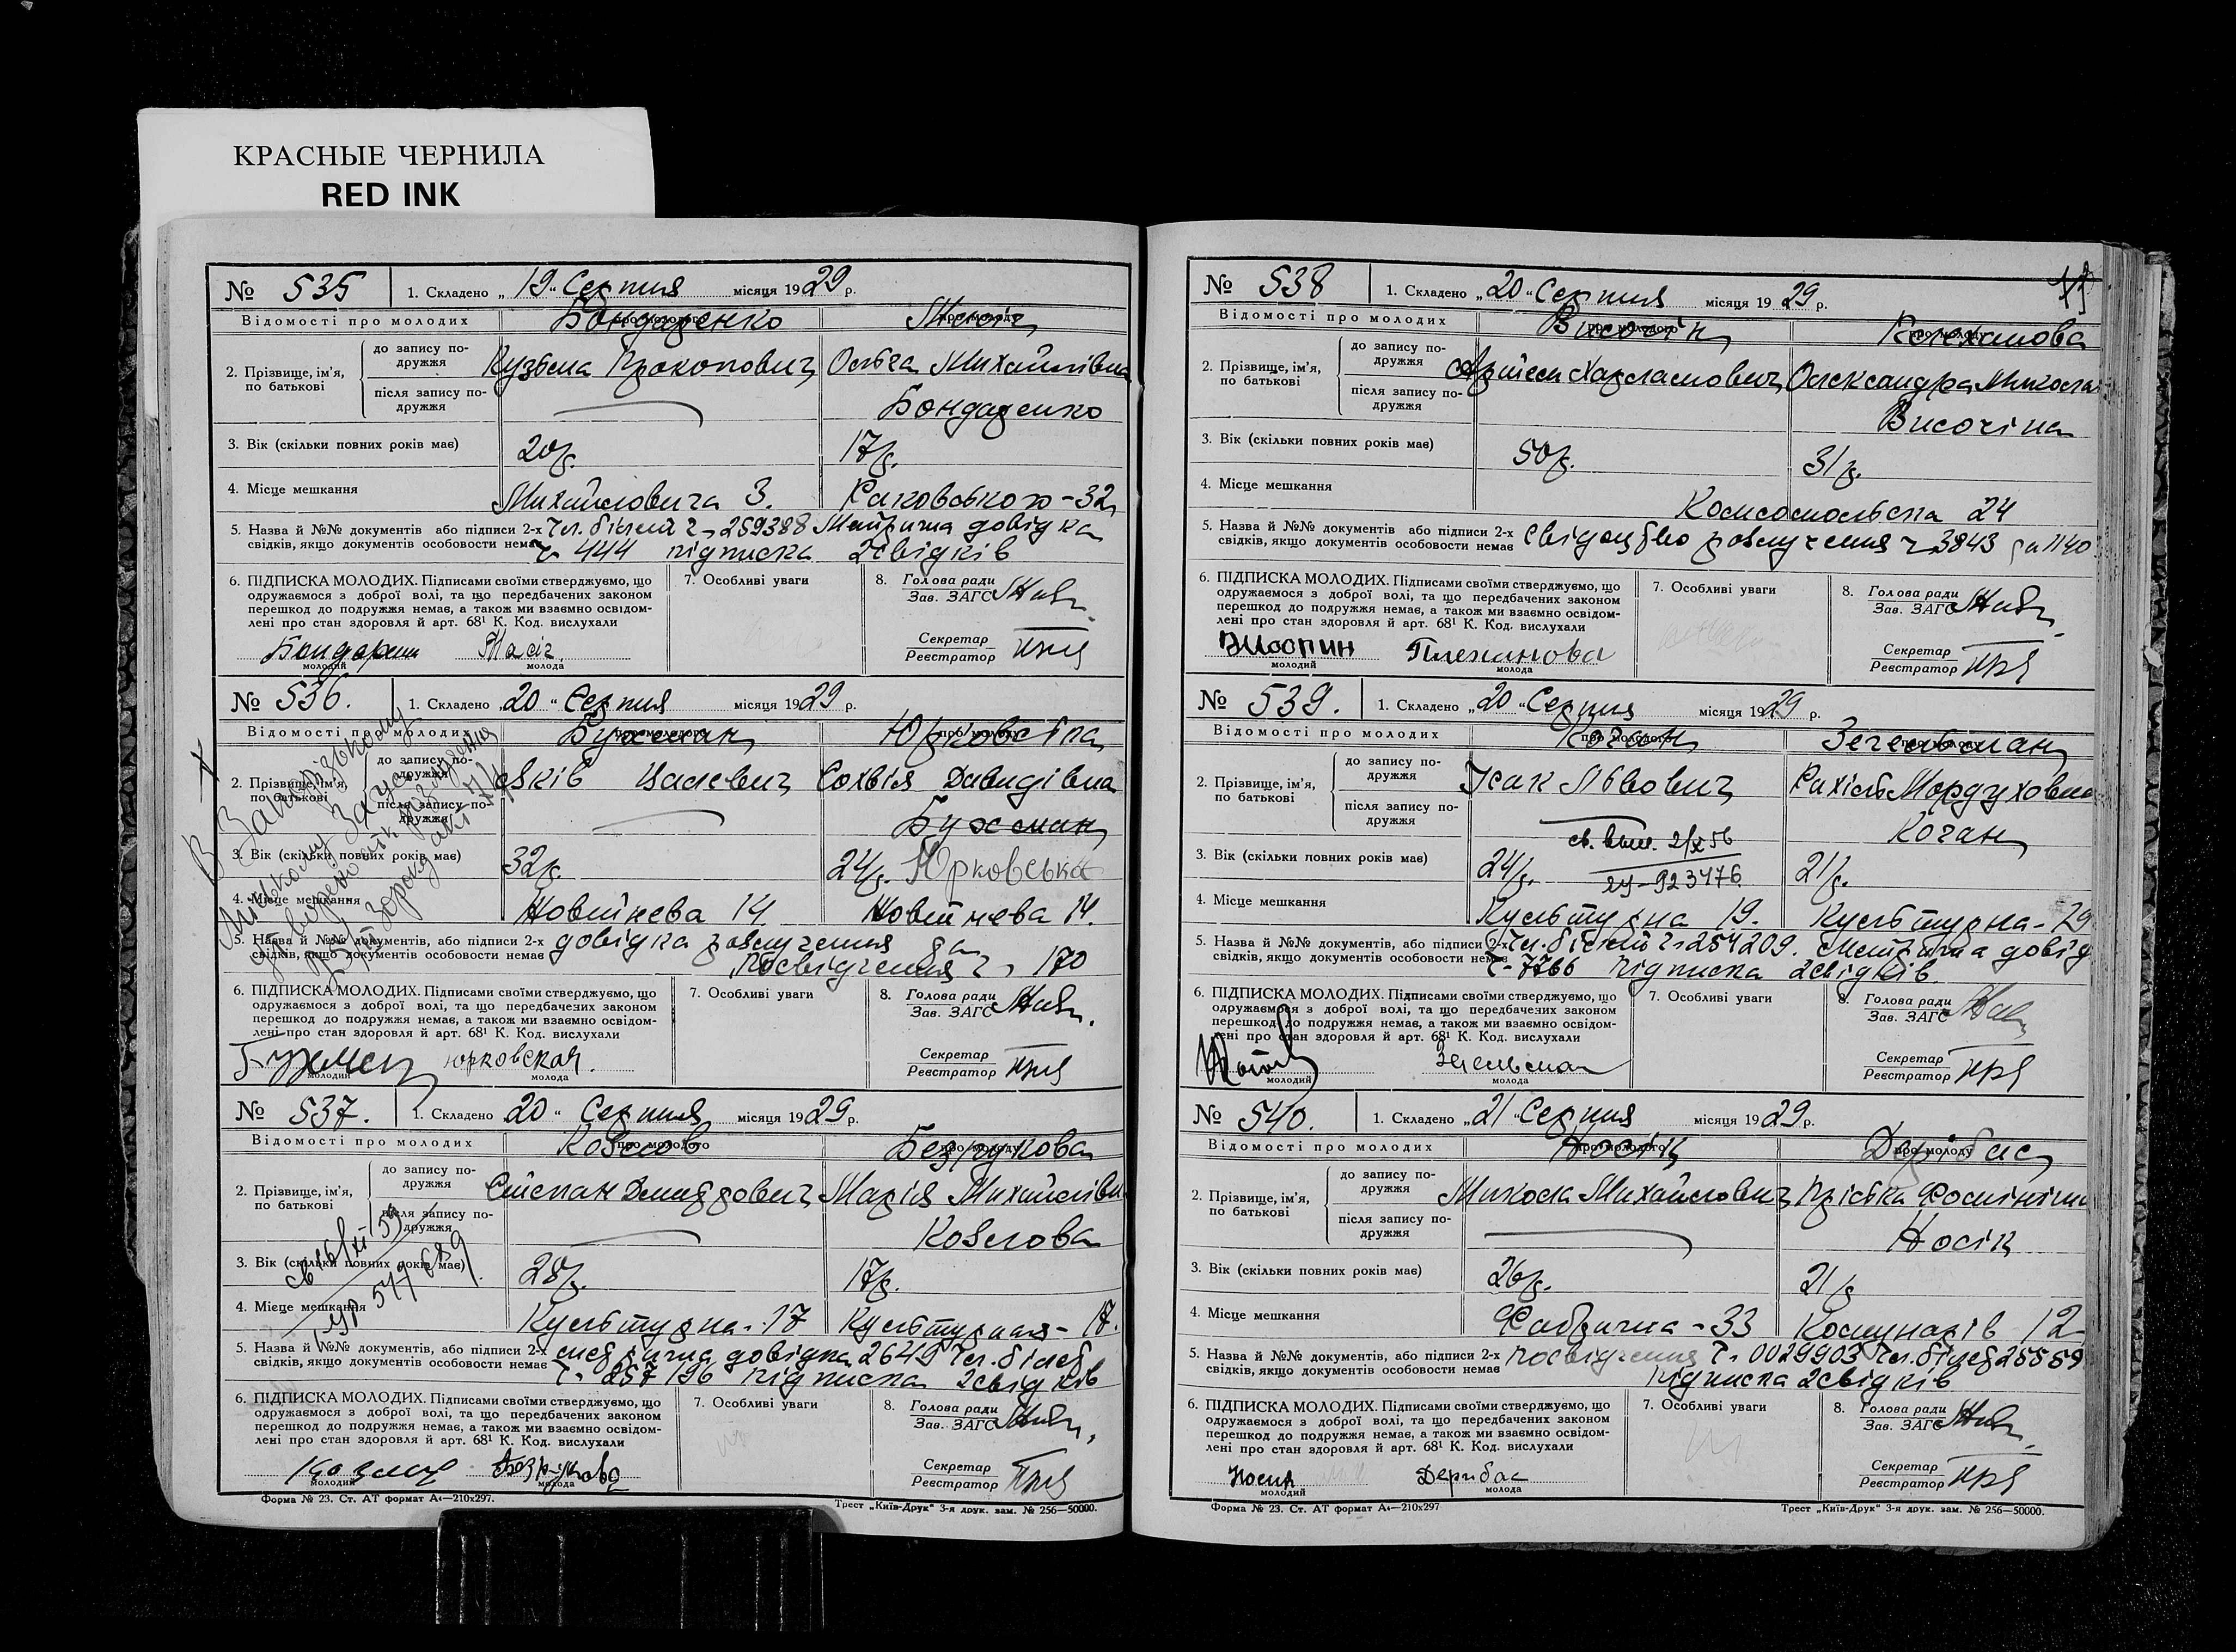 КРАСНЫЕ ЧЕРНИЛА
RED INK
№ 535 1. Складено „19“ Серпня місяця 1929 р.
Відомості про молодих про молодого про молоду
Бондаренко
2. Прізвище, ім'я, по батькові
до запису подружжя Кузьма Прокопович Ольга Михайлівна
після запису подружжя Бондаренко
3. Вік (скільки повних років має) 20 р. 17 р.
4. Місце мешкання Михайловича 3. Раковського-32
5. Назва й №№ документів або підписи 2-х свідків, якщо документів особовости немає Чл. білет ч. 259388 Метрична довідка
ч. 444 підписка 2 свідків
6. ПІДПИСКА МОЛОДИХ. Підписами своїми стверджуємо, що
одружаємося з доброї волі, та що передбачених законом
перешкод до подружжя немає, а також ми взаємно освідом-
лені про стан здоровля й арт. 68¹ К. Код. вислухали
молодий молода
7. Особливі уваги
8. Голова ради
Зав. ЗАГС
Секретар
Реєстратор
№ 536. 1. Складено „20“ Серпня місяця 1929 р.
Відомості про молодих про молодого про молоду
Бухман Юрковська
2. Прізвище, ім'я, по батькові
до запису подружжя Яків Цалевич Софвія Давидівна
після запису подружжя Бухман
3. Вік (скільки повних років має) 32 р. 24 р. Юрковська
4. Місце мешкання 14 14.
5. Назва й №№ документів, або підписи 2-х свідків, якщо документів особовости немає довідка розлучення
Посвідчення ч. 170
В Запорізькому
Міському Загсу
6. ПІДПИСКА МОЛОДИХ. Підписами своїми стверджуємо, що
одружаємося з доброї волі, та що передбачених законом
перешкод до подружжя немає, а також ми взаємно освідом-
лені про стан здоровля й арт. 68¹ К. Код. вислухали
Юрковская.
молодий молода
7. Особливі уваги
8. Голова ради
Зав. ЗАГС
Секретар
Реєстратор
№ 537. 1. Складено „20“ Серпня місяця 1929 р.
Відомості про молодих про молодого про молоду
Козлов Безрукова
2. Прізвище, ім'я, по батькові
до запису подружжя Степан Марія Михайлівна
після запису подружжя Козлова
3. Вік (скільки повних років має) 28 р. 17 р.
4. Місце мешкання Культурна-17 Культурна-17.
5. Назва й №№ документів, або підписи 2-х свідків, якщо документів особовости немає метрична довідка 2649 Чл. білет
ч. 257196 підписка 2 свідків
6. ПІДПИСКА МОЛОДИХ. Підписами своїми стверджуємо, що
одружаємося з доброї волі, та що передбачених законом
перешкод до подружжя немає, а також ми взаємно освідом-
лені про стан здоровля й арт. 68¹ К. Код. вислухали
Безрукова
молодий молода
7. Особливі уваги
8. Голова ради
Зав. ЗАГС
Секретар
Реєстратор
Форма № 23. Ст. АТ формат А₄—210х297. Трест „Київ-Друк“ 3-я друк. зам. № 256—50000.
№ 538 1. Складено „20“ Серпня місяця 1929 р.
Відомості про молодих про молодого про молоду
Височін Плеханова
2. Прізвище, ім'я, по батькові
до запису подружжя Артем Харлампович Олександра Микола
після запису подружжя Височіна
3. Вік (скільки повних років має) 50 р. 31 р.
4. Місце мешкання Комсомольська 24
5. Назва й №№ документів або підписи 2-х свідків, якщо документів особовости немає Свідоцтво розлучення ч. 3843 1140
6. ПІДПИСКА МОЛОДИХ. Підписами своїми стверджуємо, що
одружаємося з доброї волі, та що передбачених законом
перешкод до подружжя немає, а також ми взаємно освідом-
лені про стан здоровля й арт. 68¹ К. Код. вислухали
Плеханова
молодий молода
7. Особливі уваги
8. Голова ради
Зав. ЗАГС
Секретар
Реєстратор
№ 539. 1. Складено „20“ Серпня місяця 1929 р.
Відомості про молодих про молодого про молоду
Коган
2. Прізвище, ім'я, по батькові
до запису подружжя Ісак Львович Рахіль Мордуховна
після запису подружжя Коган
3. Вік (скільки повних років має) 24 р. 21 р.
4. Місце мешкання Культурна 19. Культурна-29
5. Назва й №№ документів, або підписи 2-х свідків, якщо документів особовости немає Чл. білет ч. 254209. Метрична довід
ч. 7766 підписка 2 свідків.
6. ПІДПИСКА МОЛОДИХ. Підписами своїми стверджуємо, що
одружаємося з доброї волі, та що передбачених законом
перешкод до подружжя немає, а також ми взаємно освідом-
лені про стан здоровля й арт. 68¹ К. Код. вислухали
молодий молода
7. Особливі уваги
8. Голова ради
Зав. ЗАГС
Секретар
Реєстратор
№ 540. 1. Складено „21“ Серпня місяця 1929 р.
Відомості про молодих про молодого про молоду
Носік Дерібас
2. Прізвище, ім'я, по батькові
до запису подружжя Микола Михайлович Пріська
після запису подружжя Носік
3. Вік (скільки повних років має) 26 р. 21 р
4. Місце мешкання Фабрична-33 Комунарів 12
5. Назва й №№ документів, або підписи 2-х свідків, якщо документів особовости немає Посвідчення ч. 0029903 Чл. білет 25559
підписка 2 свідків
6. ПІДПИСКА МОЛОДИХ. Підписами своїми стверджуємо, що
одружаємося з доброї волі, та що передбачених законом
перешкод до подружжя немає, а також ми взаємно освідом-
лені про стан здоровля й арт. 68¹ К. Код. вислухали
Носик Дерибас
молодий молода
7. Особливі уваги
8. Голова ради
Зав. ЗАГС
Секретар
Реєстратор
Форма № 23. Ст. АТ формат А₄—210х297 Трест „Київ-Друк“ 3-я друк. зам. № 256—50000.